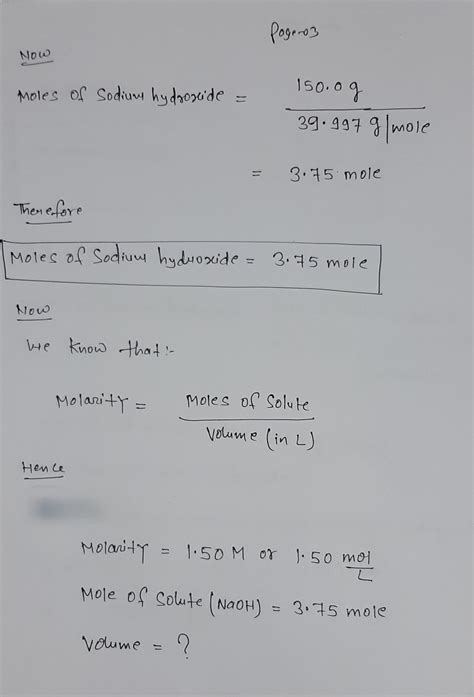 Page-03
Now
Moles of Sodium hydroxide = 150.0 g / 39.997 g/mole
= 3.75 mole
Therefore
Moles of Sodium hydroxide = 3.75 mole
Now
We know that:-
Molarity = Moles of Solute / Volume (in L)
Hence
Molarity = 1.50 M or 1.50 mol/L
Mole of Solute (NaOH) = 3.75 mole
Volume = ?